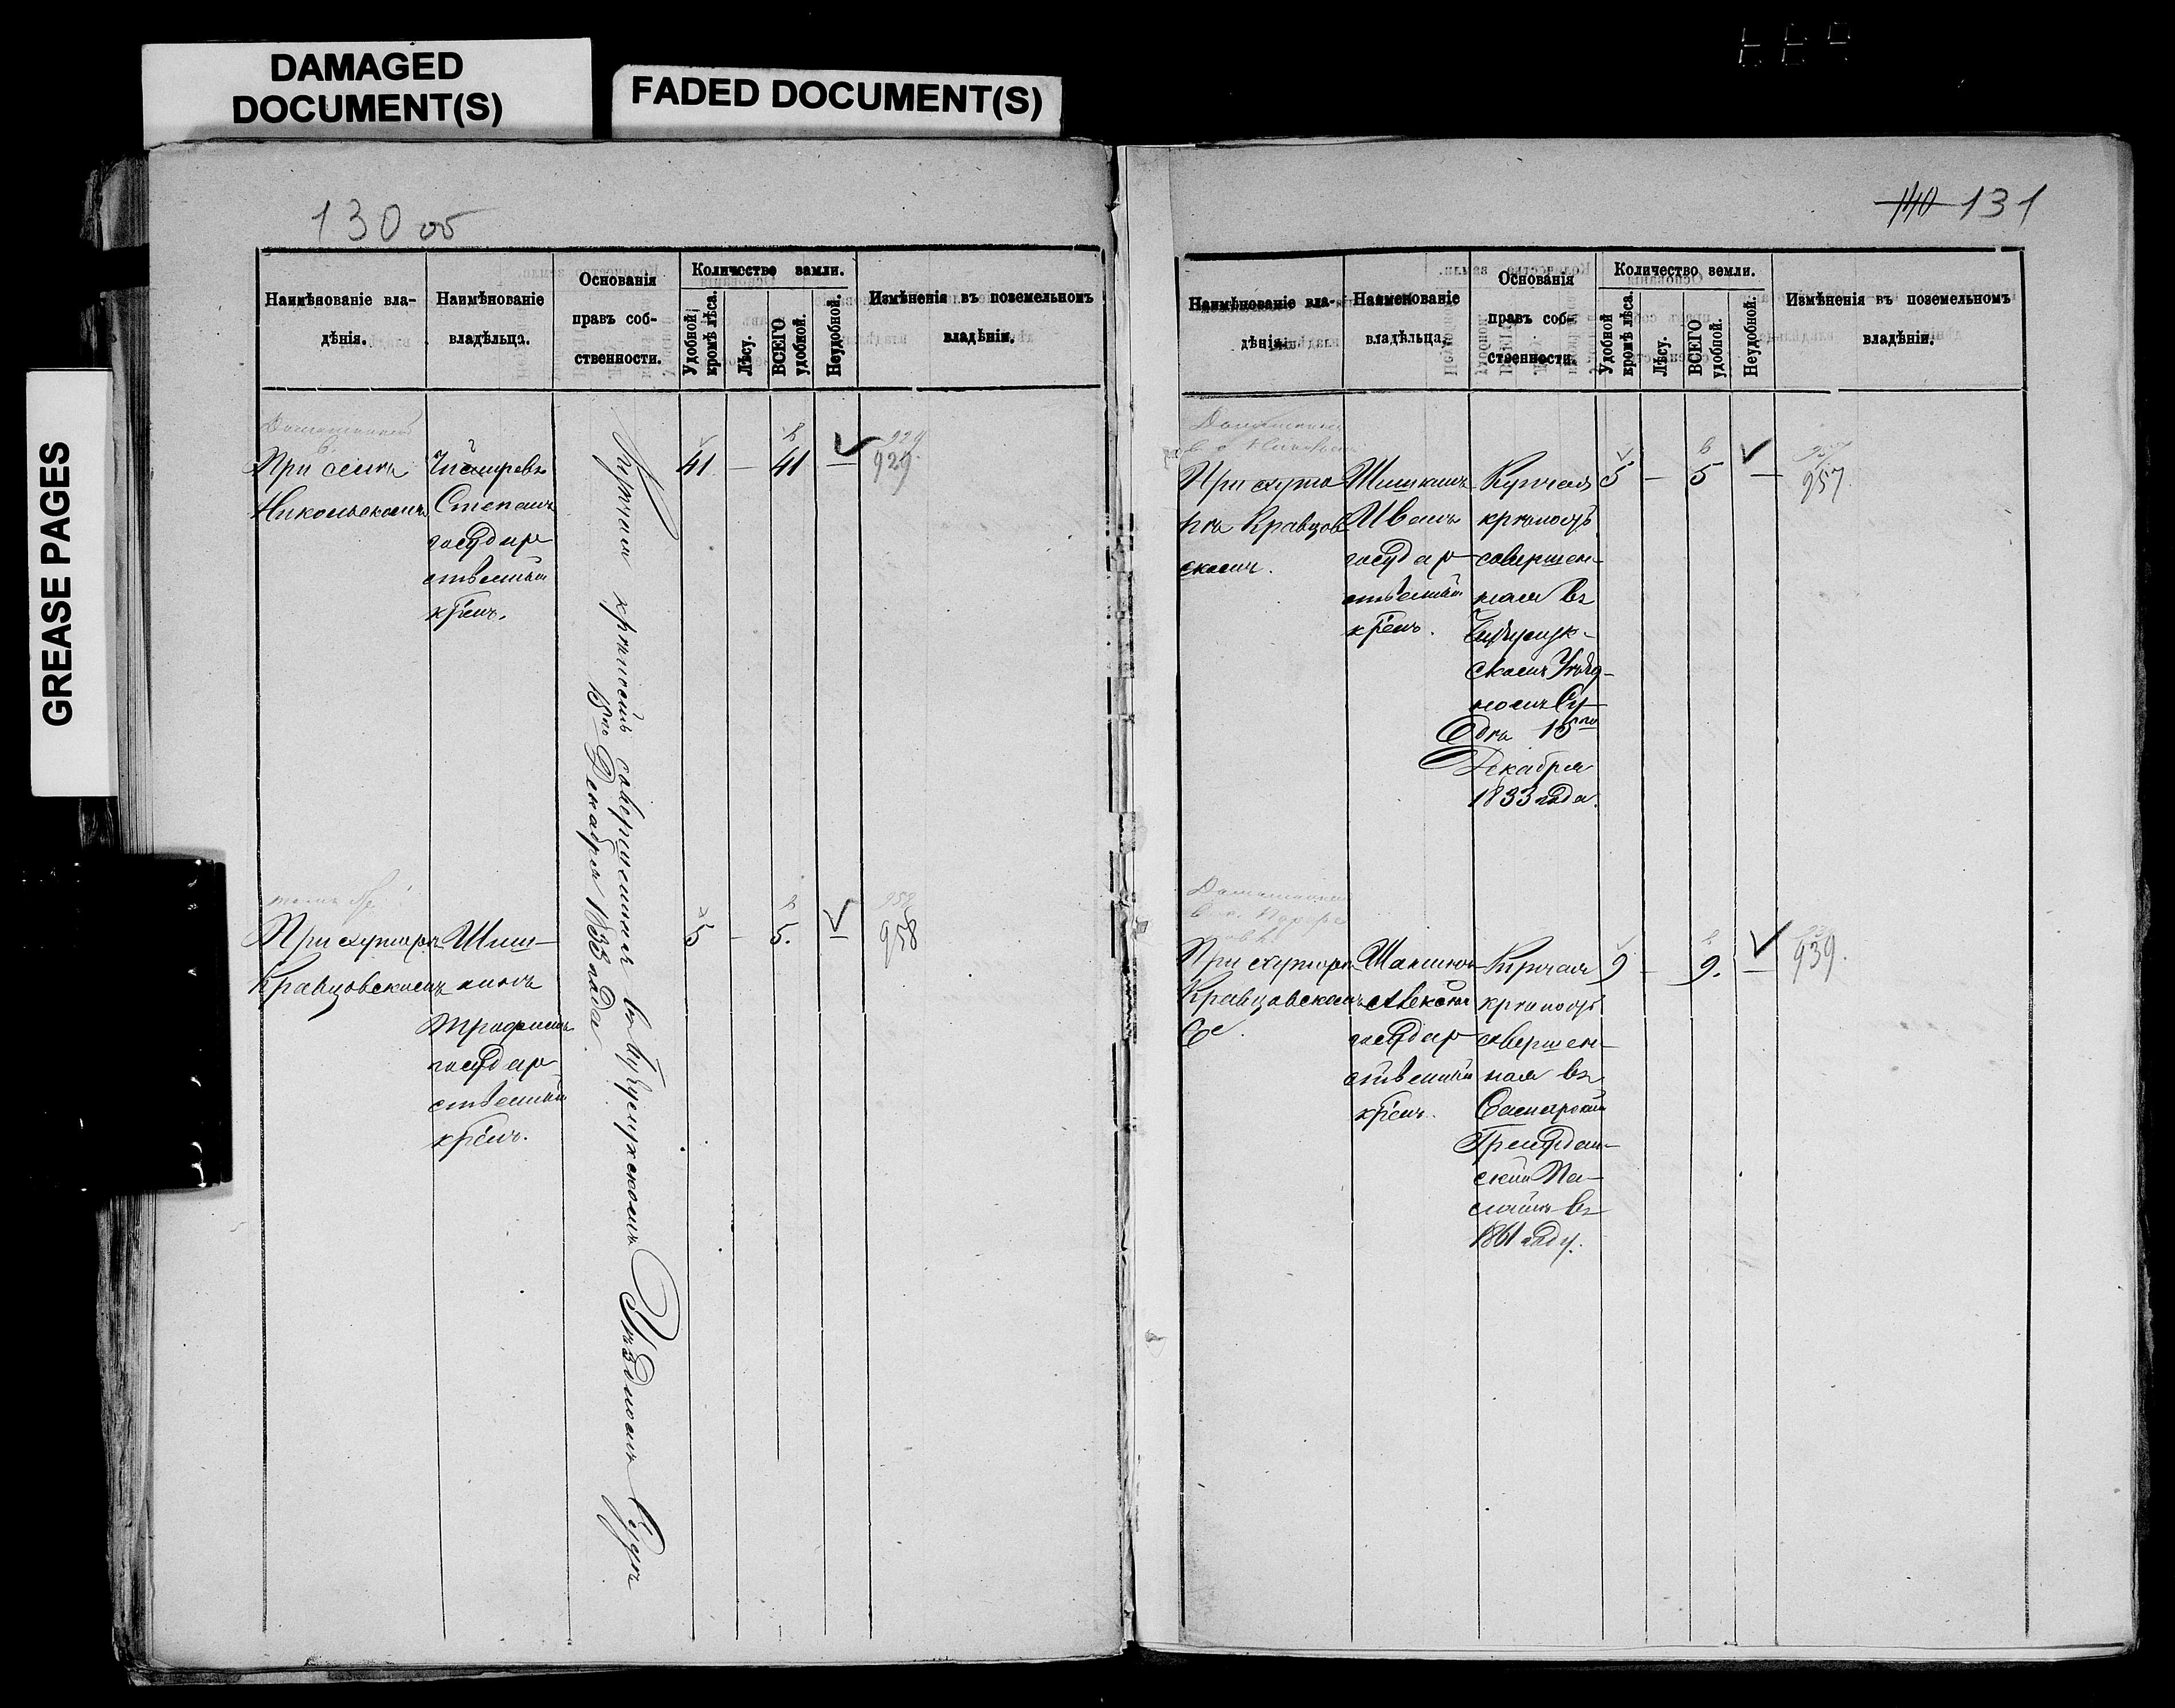 DAMAGED
DOCUMENT(S)
FADED DOCUMENT(S)
GREASE PAGES
130 об
Наимѣнованіе вла-
дѣнія.
Наимѣнованіе
владѣльца.
Основанія
правъ соб-
ственности.
Количество земли.
Удобной
кромѣ лѣса.
Лѣсу.
ВСЕГО
удобной.
Неудобной.
Измѣненія въ поземельномъ
владѣніи.
При селѣ
Никольскомъ
Степанъ
государ
ственный
крен.
Купчая крѣпость совершенная въ Бузулукскомъ Уѣздномъ Судѣ
15го Декабря 1833 года.
41 — 41 —
929
При хуторѣ
Кравцовскомъ
Шиш-
кинъ
Трофимъ
государ
ственный
крен.
5 — 5. —
958
110 131
Наимѣнованіе вла-
дѣнія.
Наименованіе
владѣльца.
Основанія
правъ соб-
ственности.
Количество земли.
Удобной
кромѣ лѣса.
Лѣсу.
ВСЕГО
удобной.
Неудобной.
Измѣненія въ поземельномъ
владѣніи.
При хуто
рѣ Кравцов
скомъ.
Шишкинъ
Иванъ
государ
ственный
крен.
Купчая
крѣпость
совершен-
ная въ
Бузулук-
скомъ Уѣзд-
номъ Су-
дѣ 15го
Декабря
1833 года.
5 — 5 —
957
При хуторѣ
Кравцовскомъ
Алексѣй
государ
ственный
крен.
Купчая
крѣпость
совершен-
ная въ
Самарской
Граждан-
ской Па-
латѣ въ
1861 году.
9 — 9. —
939.